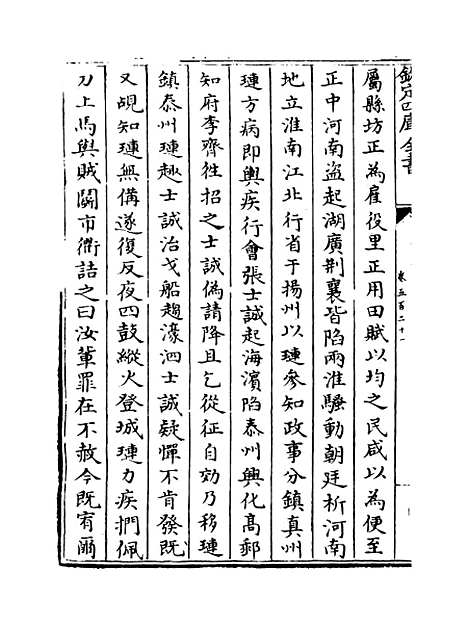 欽定四庫全書
卷五百二十一
屬縣坊正為雇役里正用田賦以均之民咸以為便至
正中河南盜起湖廣荆襄皆陷兩淮騷動朝廷析河南
地立淮南江北行省于揚州以璉參知政事分鎮真州
璉方病即輿疾行會張士誠起海濱陷泰州興化髙郵
知府李齊徃招之士誠偽請降且乞從征自効乃移璉
鎮泰州璉趣士誠治戈船趨濠泗士誠疑憚不肯發既
又覘知璉無備遂復反夜四鼓縱火登城璉力疾捫佩
刀上馬與賊鬬市衢詰之曰汝輩罪在不赦今既宥爾